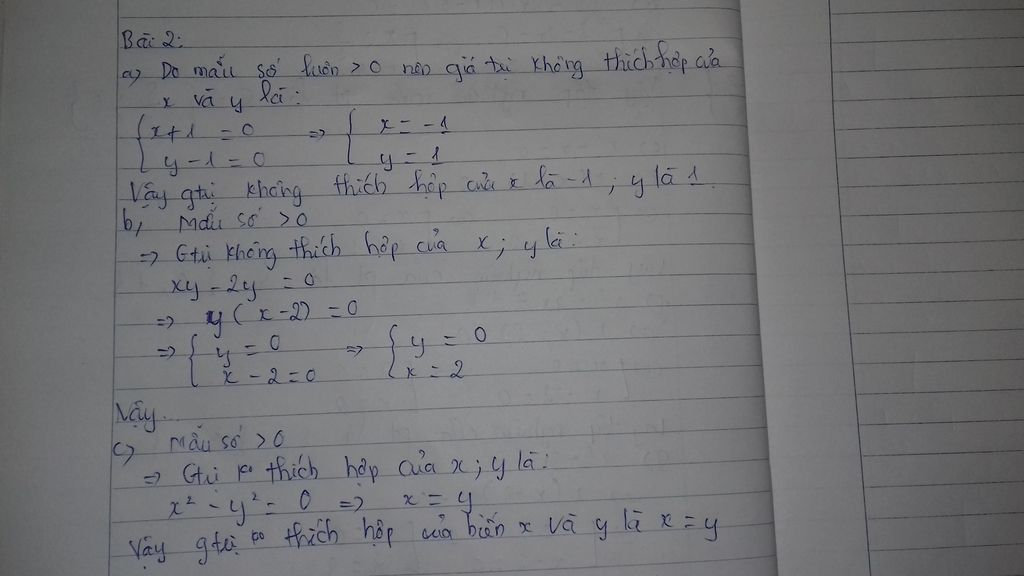 Bài 2:
a) Do mẫu số luôn > 0 nên giá trị không thích hợp của
x và y là:
{ x + 1 = 0 => { x = -1
{ y - 1 = 0 { y = 1
Vậy gtrị không thích hợp của x là -1 ; y là 1.
b, Mẫu số > 0
=> Gtrị không thích hợp của x ; y là:
xy - 2y = 0
=> y ( x - 2) = 0
=> { y = 0 => { y = 0
{ x - 2 = 0 { x = 2
Vậy...
c) Mẫu số > 0
=> Gtrị ko thích hợp của x ; y là:
x² - y² = 0 => x = y
Vậy gtrị ko thích hợp của biến x và y là x = y